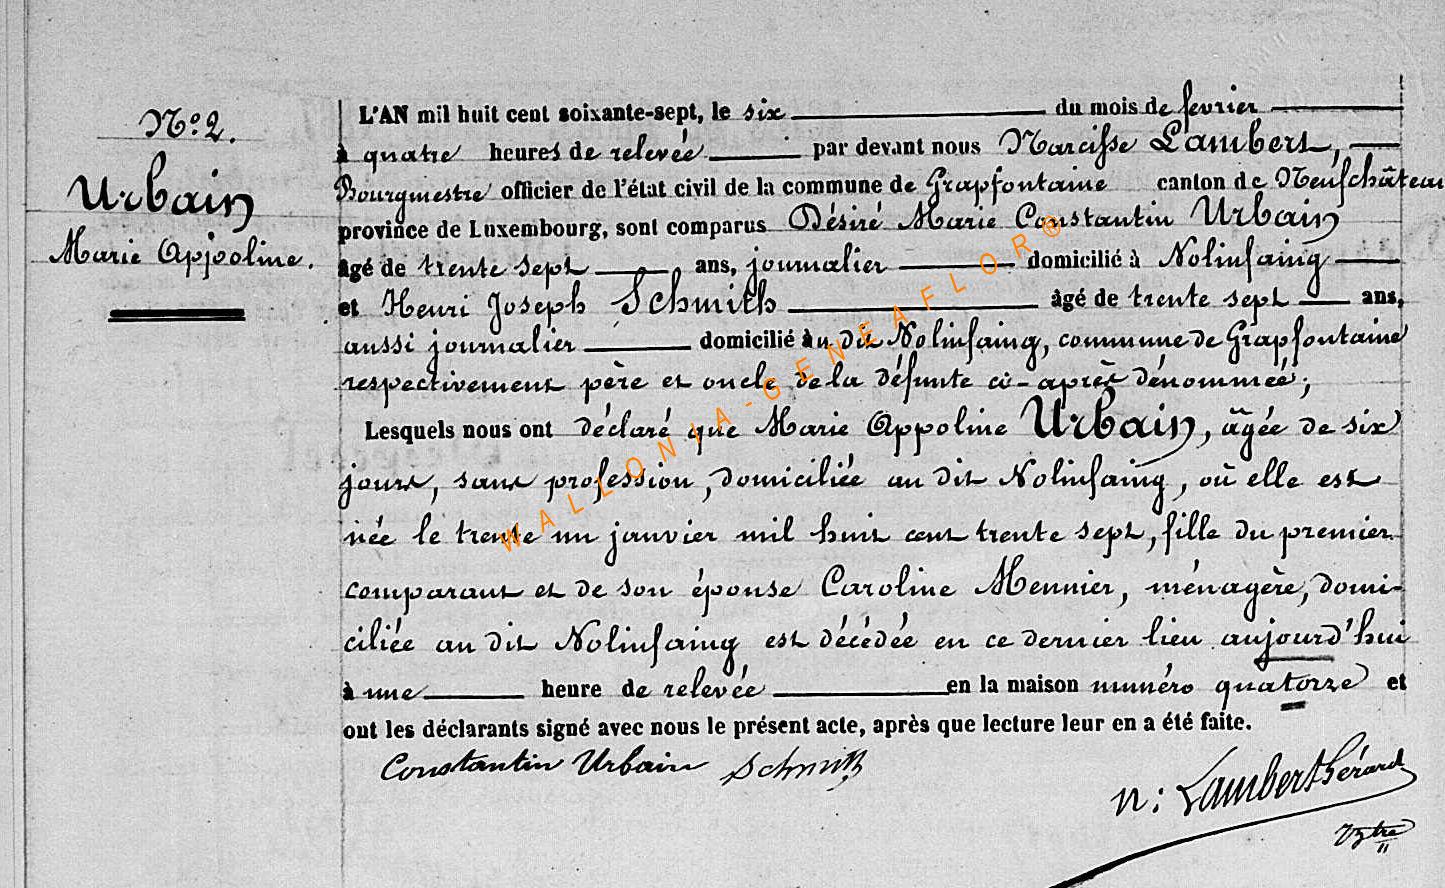 No. 2.
Urbain
Marie Appoline.
L'AN mil huit cent soixante-sept, le six du mois de fevrier
à quatre heures de relevée par devant nous Narcisse Lambert,
Bourgmestre officier de l'état civil de la commune de Grapfontaine canton de Neufchâteau
province de Luxembourg, sont comparus Désiré Marie Constantin Urbain
âgé de trente sept ans, journalier domicilié à Nolinfaing
et Henri Joseph Schmith âgé de trente sept ans,
aussi journalier domicilié au dit Nolinfaing, commune de Grapfontaine
respectivement père et oncle de la défunte ci-après dénommée;
Lesquels nous ont déclaré que Marie Appoline Urbain, âgée de six
jours, sans profession, domiciliée au dit Nolinfaing, où elle est
née le trente un janvier mil huit cent trente sept, fille du premier
comparant et de son épouse Caroline Meunier, ménagère, domi-
ciliée au dit Nolinfaing est décédée en ce dernier lieu aujourd'hui
à une heure de relevée en la maison numéro quatorze et
ont les déclarants signé avec nous le présent acte, après que lecture leur en a été faite.
Constantin Urbain Schmith
N: Lambert Gérard
WALLONIA-GENEAFLOR®